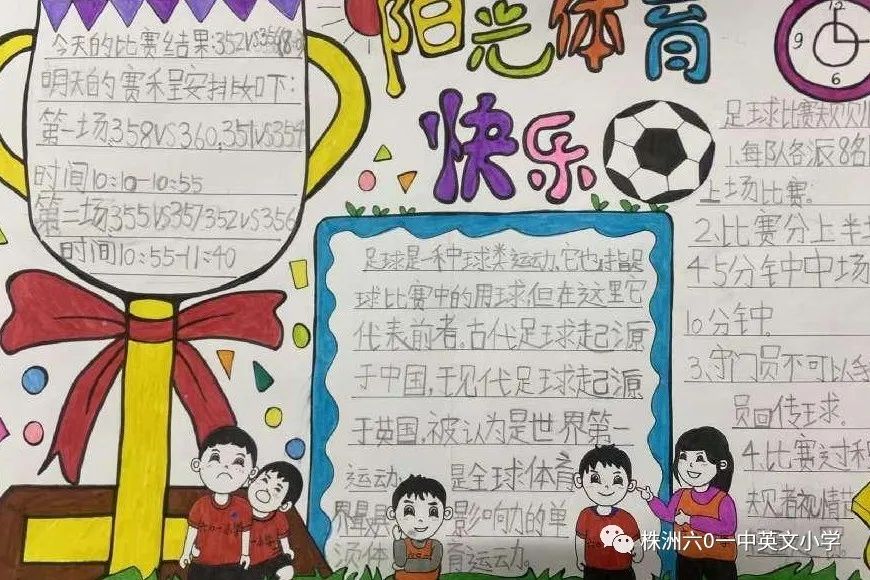 阳光体育
快乐
今天的比赛结果:352VS356
明天的赛程安排如下:
第一场,358VS360,351VS354
时间10:10-10:55
第二场,355VS357 352VS356
时间10:55-11:40
足球是一种球类运动,它也指足
球比赛中的用球,但在这里它
代表前者。古代足球起源
于中国,现代足球起源
于英国,被认为是世界第一
运动,是全球体育
界最 影响力的单
项体 育运动。
12
9
3
6
足球比赛规则
1.每队各派8名
上场比赛。
2.比赛分上半
45分钟中场
10分钟。
3.守门员不可以
员回传球。
4.比赛过程
六0一小学
株洲六0一中英文小学